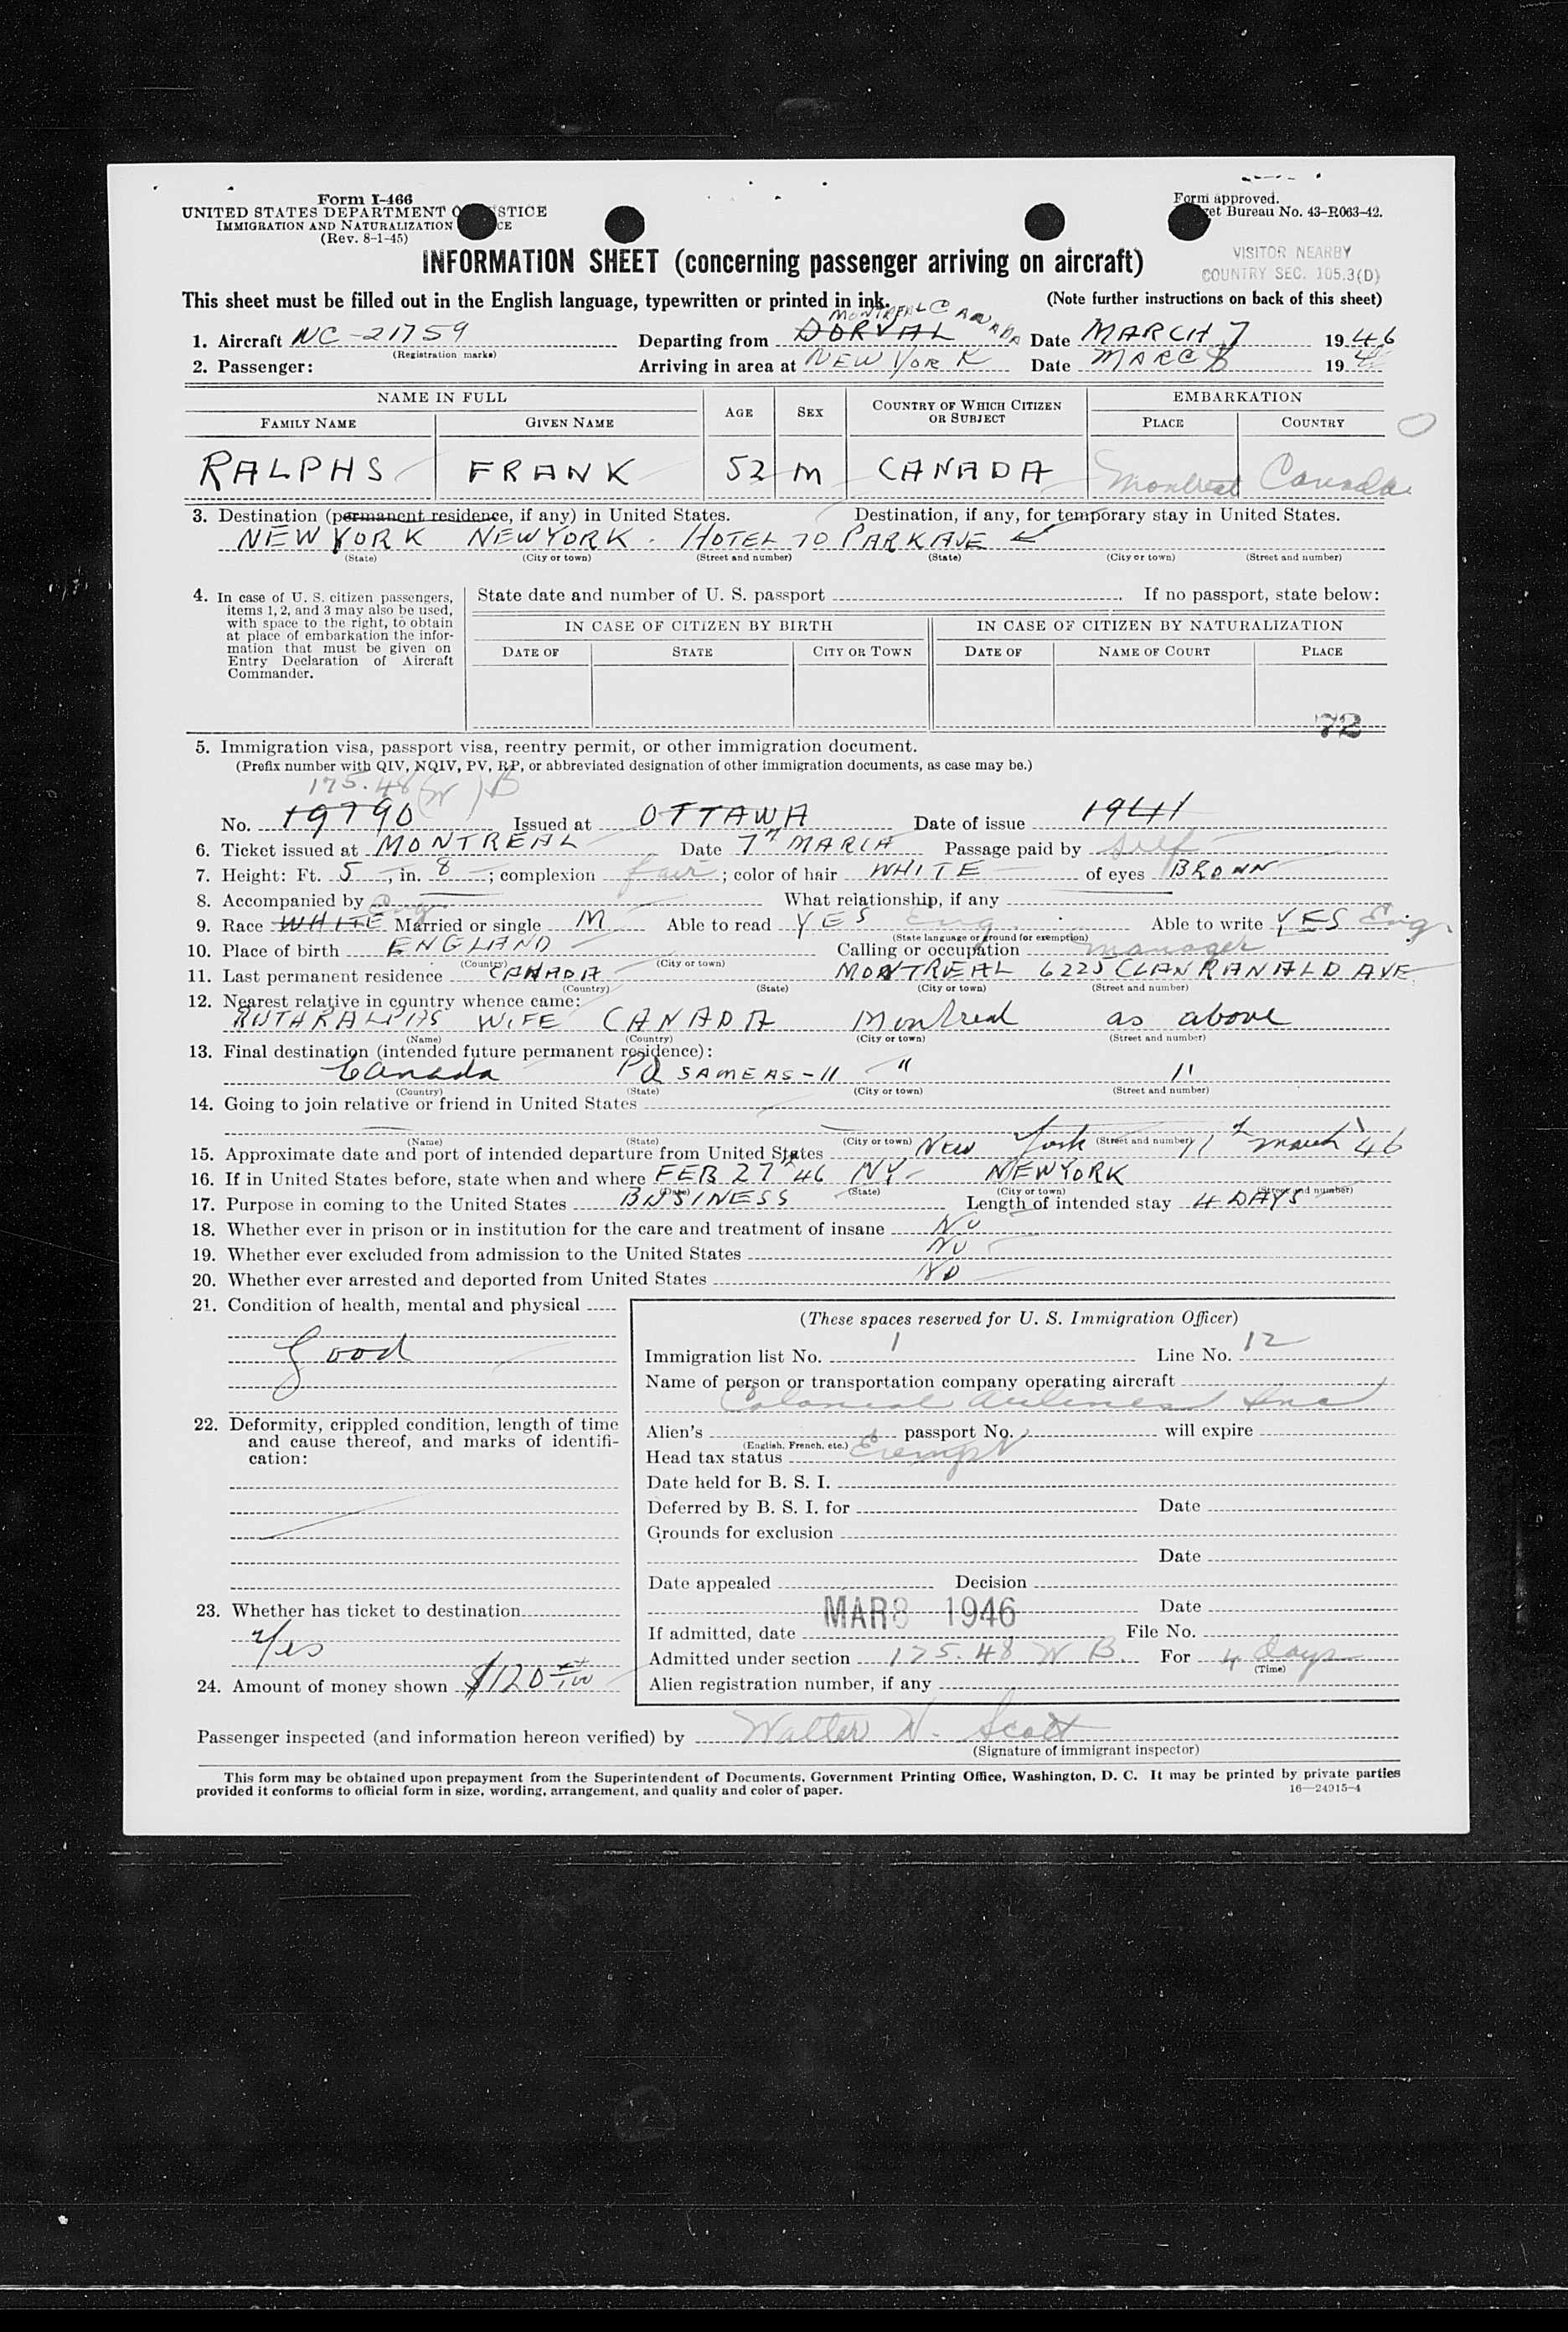 Form I-466
UNITED STATES DEPARTMENT O STICE
IMMIGRATION AND NATURALIZATION CE
(Rev. 8-1-45)
Form approved.
et Bureau No. 43-R063-42.
VISITOR NEARBY
COUNTRY SEC. 105.3(D)
INFORMATION SHEET (concerning passenger arriving on aircraft)
This sheet must be filled out in the English language, typewritten or printed in ink. (Note further instructions on back of this sheet)
MONTREAL CANADA
1. Aircraft NC-21759 Departing from DORVAL Date MARCH 7 1946
(Registration marks)
2. Passenger: Arriving in area at NEW YORK Date MARC 8 194
NAME IN FULL AGE SEX COUNTRY OF WHICH CITIZEN OR SUBJECT EMBARKATION
FAMILY NAME GIVEN NAME PLACE COUNTRY
RALPHS FRANK 52 M CANADA Montreal Canada
3. Destination (permanent residence, if any) in United States. Destination, if any, for temporary stay in United States.
NEW YORK NEW YORK. HOTEL 70 PARK AVE
(State) (City or town) (Street and number) (State) (City or town) (Street and number)
4. In case of U. S. citizen passengers,
items 1, 2, and 3 may also be used,
with space to the right, to obtain
at place of embarkation the infor-
mation that must be given on
Entry Declaration of Aircraft
Commander.
State date and number of U. S. passport If no passport, state below:
IN CASE OF CITIZEN BY BIRTH IN CASE OF CITIZEN BY NATURALIZATION
DATE OF STATE CITY OR TOWN DATE OF NAME OF COURT PLACE
72
5. Immigration visa, passport visa, reentry permit, or other immigration document.
(Prefix number with QIV, NQIV, PV, RP, or abbreviated designation of other immigration documents, as case may be.)
175.48 (W) B
No. 19790 Issued at OTTAWA Date of issue 1941
6. Ticket issued at MONTREAL Date 7TH MARCH Passage paid by Self
7. Height: Ft. 5, in. 8; complexion fair; color of hair WHITE of eyes BROWN
8. Accompanied by What relationship, if any
9. Race WHITE Eng Married or single M Able to read YES Eng Able to write YES Eng.
(State language or ground for exemption)
10. Place of birth ENGLAND Calling or occupation manager
(Country) (City or town)
11. Last permanent residence CANADA MONTREAL 6225 CLANRANALD AVE
(Country) (State) (City or town) (Street and number)
12. Nearest relative in country whence came:
RUTH RALPHS WIFE CANADA Montreal as above
(Name) (Country) (City or town) (Street and number)
13. Final destination (intended future permanent residence):
Canada PQ SAME AS-11 " "
(Country) (State) (City or town) (Street and number)
14. Going to join relative or friend in United States
(Name) (State) (City or town) (Street and number)
15. Approximate date and port of intended departure from United States New York 11th march '46
16. If in United States before, state when and where FEB 27th 46 NY- NEW YORK
(Date) (State) (City or town) (Street and number)
17. Purpose in coming to the United States BUSINESS Length of intended stay 4 DAYS
18. Whether ever in prison or in institution for the care and treatment of insane No
19. Whether ever excluded from admission to the United States No
20. Whether ever arrested and deported from United States No
21. Condition of health, mental and physical
Good
22. Deformity, crippled condition, length of time
and cause thereof, and marks of identifi-
cation:
23. Whether has ticket to destination
Yes
24. Amount of money shown $120 xx/100
(These spaces reserved for U. S. Immigration Officer)
Immigration list No. 1 Line No. 12
Name of person or transportation company operating aircraft
Colonial Airlines Inc
Alien's passport No. will expire
(English, French, etc.)
Head tax status Exempt
Date held for B. S. I.
Deferred by B. S. I. for Date
Grounds for exclusion
Date
Date appealed Decision
MAR 8 1946 Date
If admitted, date File No.
Admitted under section 175.48 W B. For 4 days
(Time)
Alien registration number, if any
Passenger inspected (and information hereon verified) by Walter W. Scott
(Signature of immigrant inspector)
This form may be obtained upon prepayment from the Superintendent of Documents, Government Printing Office, Washington, D. C. It may be printed by private parties
provided it conforms to official form in size, wording, arrangement, and quality and color of paper. 16—24915-4